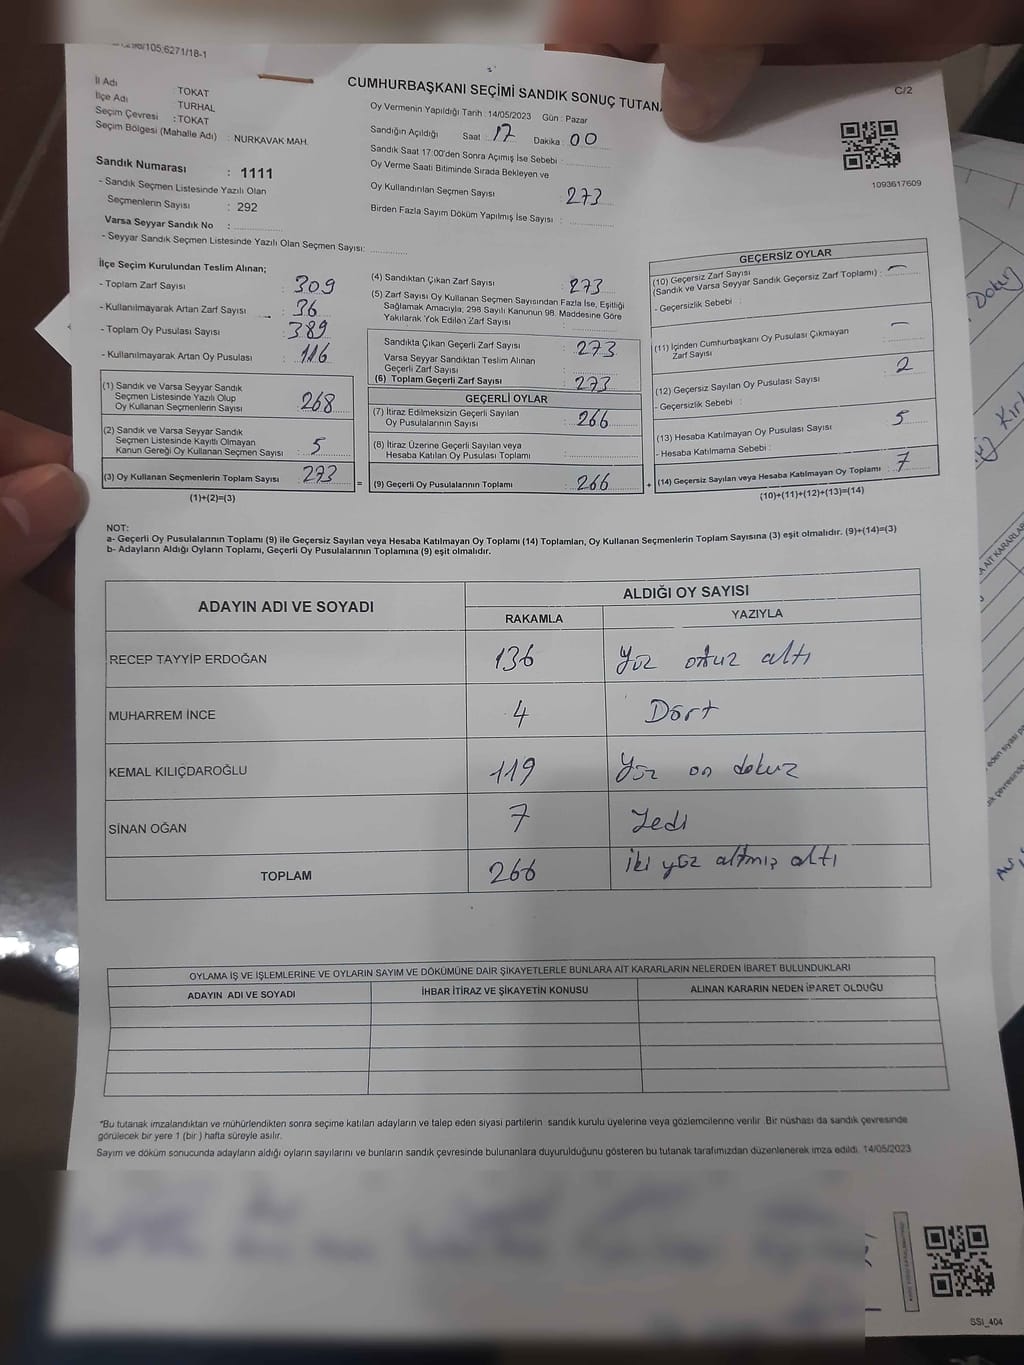 /105.6271/18-1
C/2
CUMHURBAŞKANI SEÇİMİ SANDIK SONUÇ
İl Adı : TOKAT
İlçe Adı : TURHAL
Seçim Çevresi : TOKAT
Seçim Bölgesi (Mahalle Adı) : NURKAVAK MAH.
Oy Vermenin Yapıldığı Tarih : 14/05/2023 Gün : Pazar
Sandığın Açıldığı Saat : 17 Dakika : 00
Sandık Saat 17:00'den Sonra Açımış İse Sebebi :
Oy Verme Saati Bitiminde Sırada Bekleyen ve
Oy Kullandırılan Seçmen Sayısı : 273
Birden Fazla Sayım Döküm Yapılmış İse Sayısı :
1093617609
Sandık Numarası : 1111
- Sandık Seçmen Listesinde Yazılı Olan
Seçmenlerin Sayısı : 292
Varsa Seyyar Sandık No :
- Seyyar Sandık Seçmen Listesinde Yazılı Olan Seçmen Sayısı:
İlçe Seçim Kurulundan Teslim Alınan;
- Toplam Zarf Sayısı : 309
- Kullanılmayarak Artan Zarf Sayısı : 36
- Toplam Oy Pusulası Sayısı : 389
- Kullanılmayarak Artan Oy Pusulası : 116
(1) Sandık ve Varsa Seyyar Sandık
Seçmen Listesinde Yazılı Olup
Oy Kullanan Seçmenlerin Sayısı : 268
(2) Sandık ve Varsa Seyyar Sandık
Seçmen Listesinde Kayıtlı Olmayan
Kanun Gereği Oy Kullanan Seçmen Sayısı : 5
(3) Oy Kullanan Seçmenlerin Toplam Sayısı : 273
(1)+(2)=(3)
(4) Sandıktan Çıkan Zarf Sayısı : 273
(5) Zarf Sayısı Oy Kullanan Seçmen Sayısından Fazla İse, Eşitliği
Sağlamak Amacıyla; 298 Sayılı Kanunun 98. Maddesine Göre
Yakılarak Yok Edilen Zarf Sayısı :
Sandıkta Çıkan Geçerli Zarf Sayısı : 273
Varsa Seyyar Sandıktan Teslim Alınan
Geçerli Zarf Sayısı :
(6) Toplam Geçerli Zarf Sayısı : 273
GEÇERLİ OYLAR
(7) İtiraz Edilmeksizin Geçerli Sayılan
Oy Pusulalarının Sayısı : 266
(8) İtiraz Üzerine Geçerli Sayılan veya
Hesaba Katılan Oy Pusulası Toplamı :
= (9) Geçerli Oy Pusulalarının Toplamı : 266
GEÇERSİZ OYLAR
(10) Geçersiz Zarf Sayısı
(Sandık ve Varsa Seyyar Sandık Geçersiz Zarf Toplamı) : —
- Geçersizlik Sebebi :
(11) İçinden Cumhurbaşkanı Oy Pusulası Çıkmayan
Zarf Sayısı : —
(12) Geçersiz Sayılan Oy Pusulası Sayısı : 2
- Geçersizlik Sebebi :
(13) Hesaba Katılmayan Oy Pusulası Sayısı : 5
- Hesaba Katılmama Sebebi :
+ (14) Geçersiz Sayılan veya Hesaba Katılmayan Oy Toplamı : 7
(10)+(11)+(12)+(13)=(14)
NOT:
a- Geçerli Oy Pusulalarının Toplamı (9) ile Geçersiz Sayılan veya Hesaba Katılmayan Oy Toplamı (14) Toplamları, Oy Kullanan Seçmenlerin Toplam Sayısına (3) eşit olmalıdır. (9)+(14)=(3)
b- Adayların Aldığı Oyların Toplamı, Geçerli Oy Pusulalarının Toplamına (9) eşit olmalıdır.
ADAYIN ADI VE SOYADI
ALDIĞI OY SAYISI
RAKAMLA YAZIYLA
RECEP TAYYİP ERDOĞAN 136 Yüz otuz altı
MUHARREM İNCE 4 Dört
KEMAL KILIÇDAROĞLU 119 Yüz on dokuz
SİNAN OĞAN 7 Yedi
TOPLAM 266 iki yüz altmış altı
OYLAMA İŞ VE İŞLEMLERİNE VE OYLARIN SAYIM VE DÖKÜMÜNE DAİR ŞİKAYETLERLE BUNLARA AİT KARARLARIN NELERDEN İBARET BULUNDUKLARI
ADAYIN ADI VE SOYADI İHBAR İTİRAZ VE ŞİKAYETİN KONUSU ALINAN KARARIN NEDEN İPARET OLDUĞU
"Bu tutanak imzalandıktan ve mühürlendikten sonra seçime katılan adayların ve talep eden siyasi partilerin sandık kurulu üyelerine veya gözlemcilerine verilir. Bir nüshası da sandık çevresinde
görülecek bir yere 1 (bir ) hafta süreyle asılır.
Sayım ve döküm sonucunda adayların aldığı oyların sayılarını ve bunların sandık çevresinde bulunanlara duyurulduğunu gösteren bu tutanak tarafımızdan düzenlenerek imza edildi. 14/05/2023
SSI_404